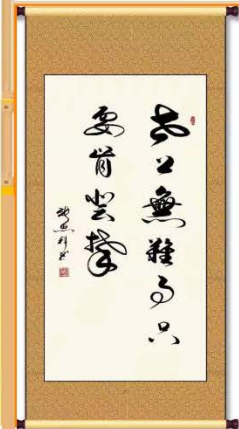 世上無難事只
要肯登攀